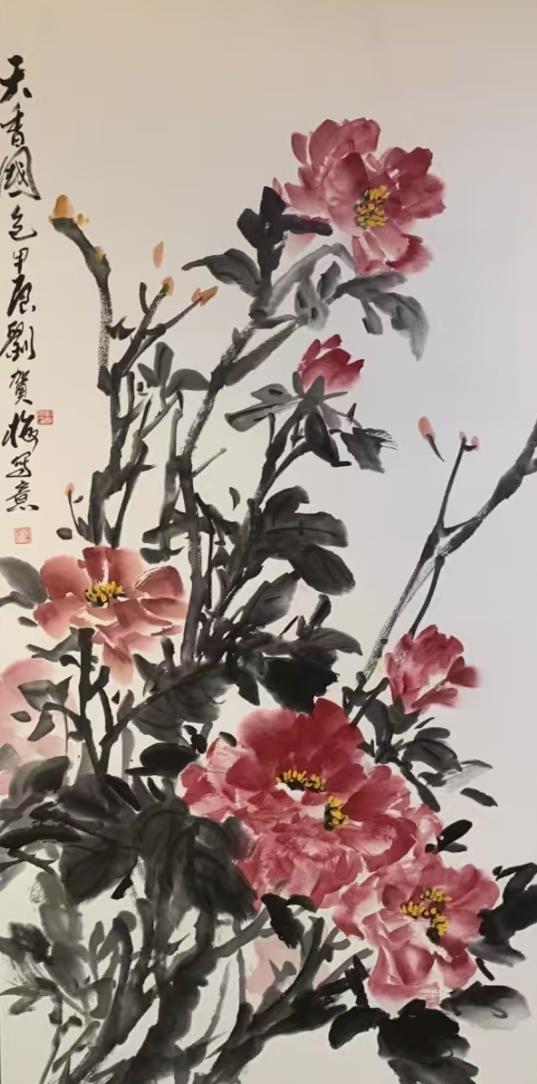 天香國色甲辰劉賀梅寫意